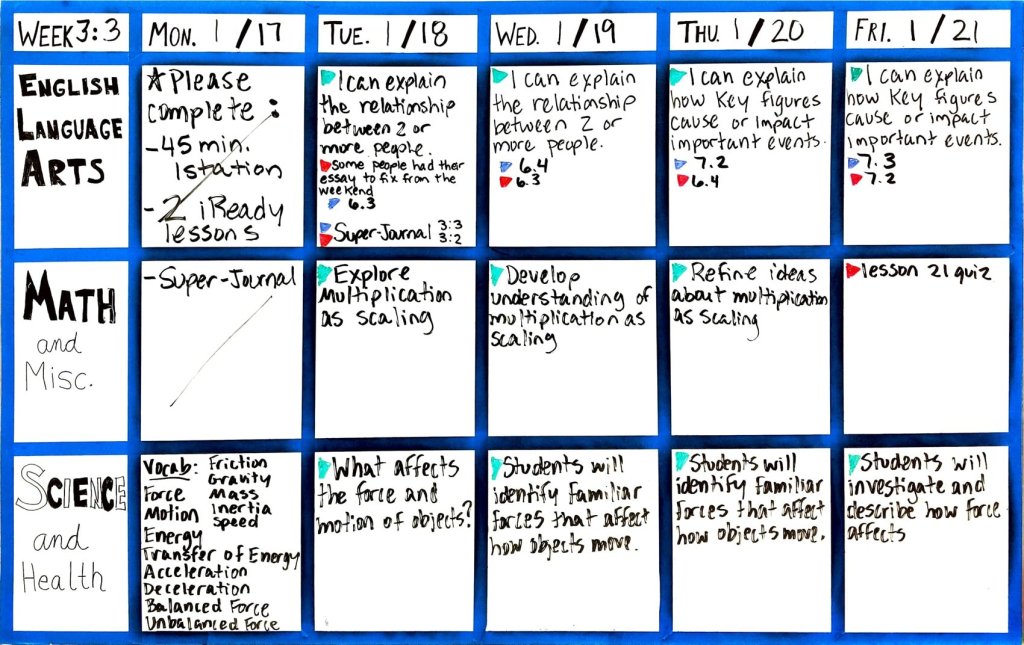 WEEK 3:3
MON. 1/17
TUE. 1/18
WED. 1/19
THU. 1/20
FRI. 1/21
ENGLISH
LANGUAGE
ARTS
☆Please
complete:
-45 min.
Istation
-2 iReady
lessons
I can explain
the relationship
between 2 or
more people.
some people had their
essay to fix from the
weekend
6.3
Super-Journal 3:3
3:2
I can explain
the relationship
between 2 or
more people.
6.4
6.3
I can explain
how Key figures
cause or impact
important events.
7.2
6.4
I can explain
how Key figures
cause or impact
important events.
7.3
7.2
MATH
and
Misc.
-Super-Journal
Explore
Multiplication
as scaling
Develop
understanding of
multiplication as
scaling
Refine ideas
about multiplication
as scaling
lesson 21 quiz
SCIENCE
and
Health
Vocab: Friction
Gravity
Force Mass
Motion Inertia
Speed
Energy
Transfer of Energy
Acceleration
Deceleration
Balanced Force
Unbalanced Force
What affects
the force and
motion of objects?
Students will
identify familiar
forces that affect
how objects move.
Students will
identify familiar
forces that affect
how objects move.
Students will
investigate and
describe how force
affects